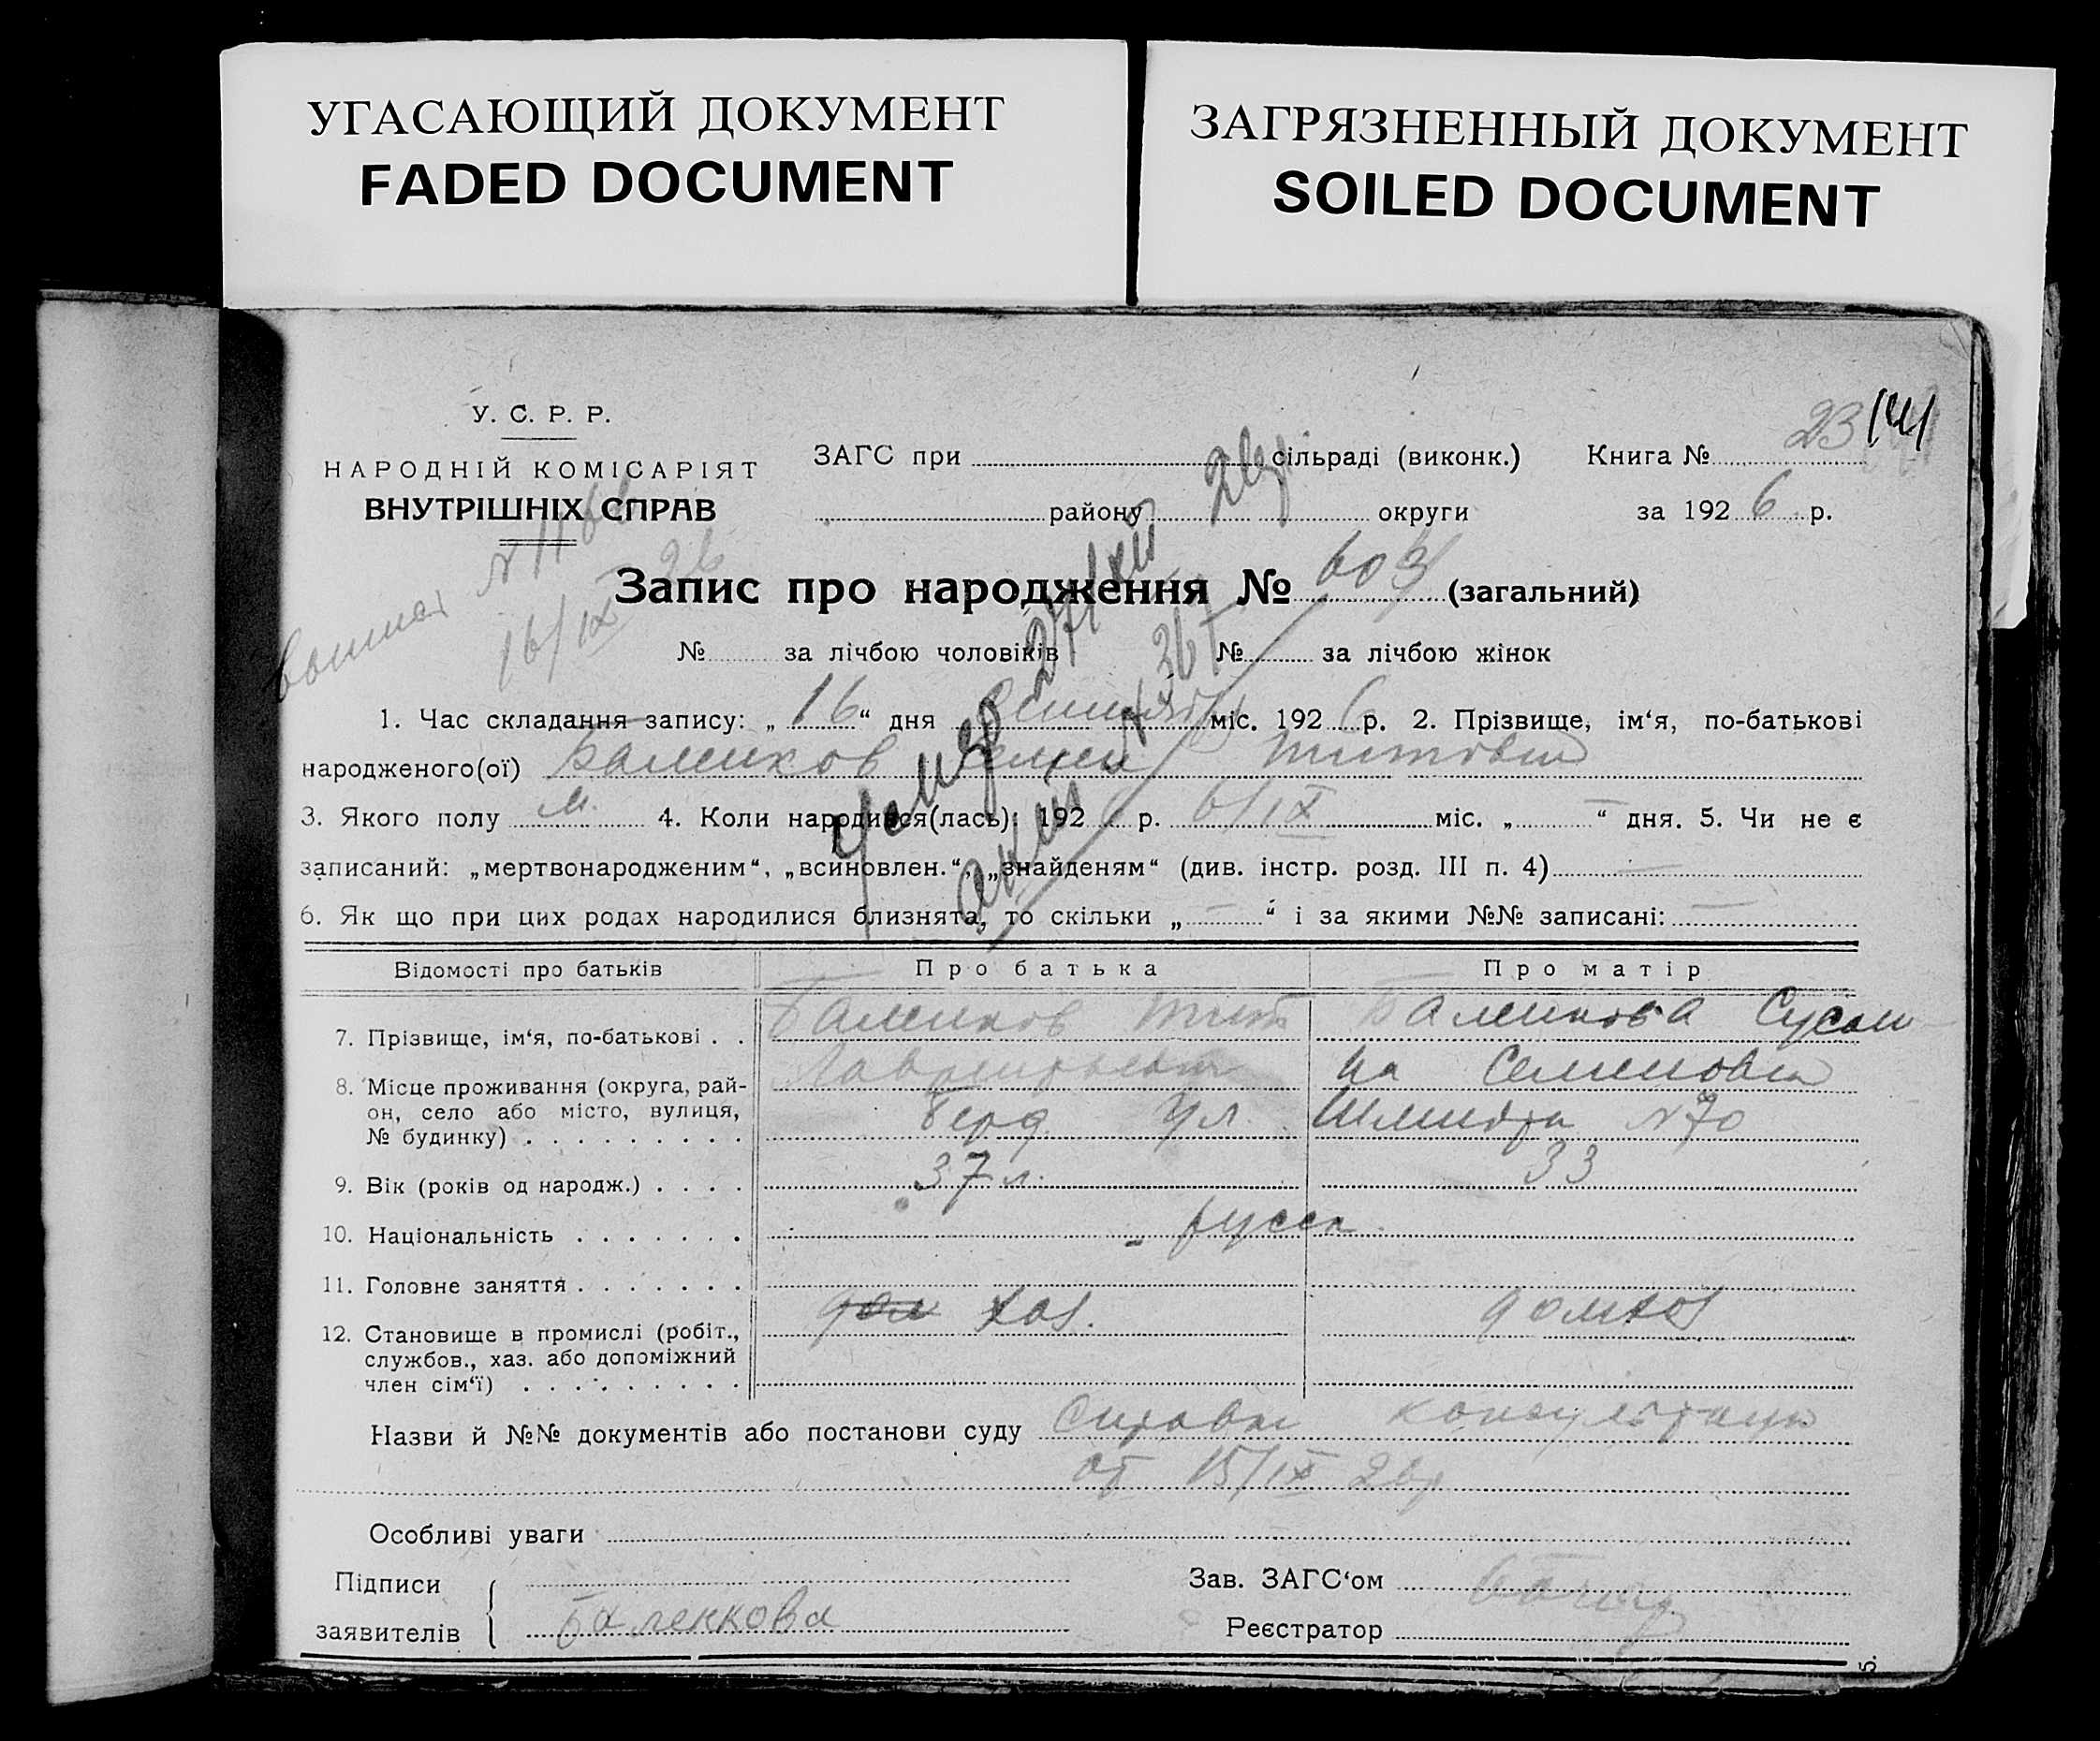 УГАСАЮЩИЙ ДОКУМЕНТ
FADED DOCUMENT
ЗАГРЯЗНЕННЫЙ ДОКУМЕНТ
SOILED DOCUMENT
У. С. Р. Р.
НАРОДНІЙ КОМІСАРІЯТ
ВНУТРІШНІХ СПРАВ
ЗАГС при сільраді (виконк.) Книга № 23
району округи за 192 6 р.
16/IX 26
Запис про народження № 603 (загальний)
№ за лічбою чоловіків № за лічбою жінок
1. Час складання запису: „ 16 “ дня міс. 192 6 р. 2. Прізвище, ім‘я, по-батькові
народженого(ої)
3. Якого полу м. 4. Коли народився(лась): 192 р. 6/IX міс. „ — “ дня. 5. Чи не є
записаний: „мертвонародженим“, „всиновлен.“, „знайденям“ (див. інстр. розд. III п. 4) —
6. Як що при цих родах народилися близнята, то скільки „ — “ і за якими №№ записані: —
Відомості про батьків Про батька Про матір
7. Прізвище, ім‘я, по-батькові . . Тит Сусан
на Семеновна
8. Місце проживання (округа, рай-
он, село або місто, вулиця,
№ будинку) . . . . . . . . . Берд ул. Шмидта №70
9. Вік (років од народж.) . . . . 37 л. 33
10. Національність . . . . . . . русск
11. Головне заняття . . . . . . .
12. Становище в промислі (робіт.,
службов., хаз. або допоміжний
член сім‘ї) . . . . . . . . . дом хоз. домхоз
Назви й №№ документів або постанови суду Справка консультации
от 15/IX 26 г
Особливі уваги
Підписи
заявителів
Зав. ЗАГС‘ом
Реєстратор
5.